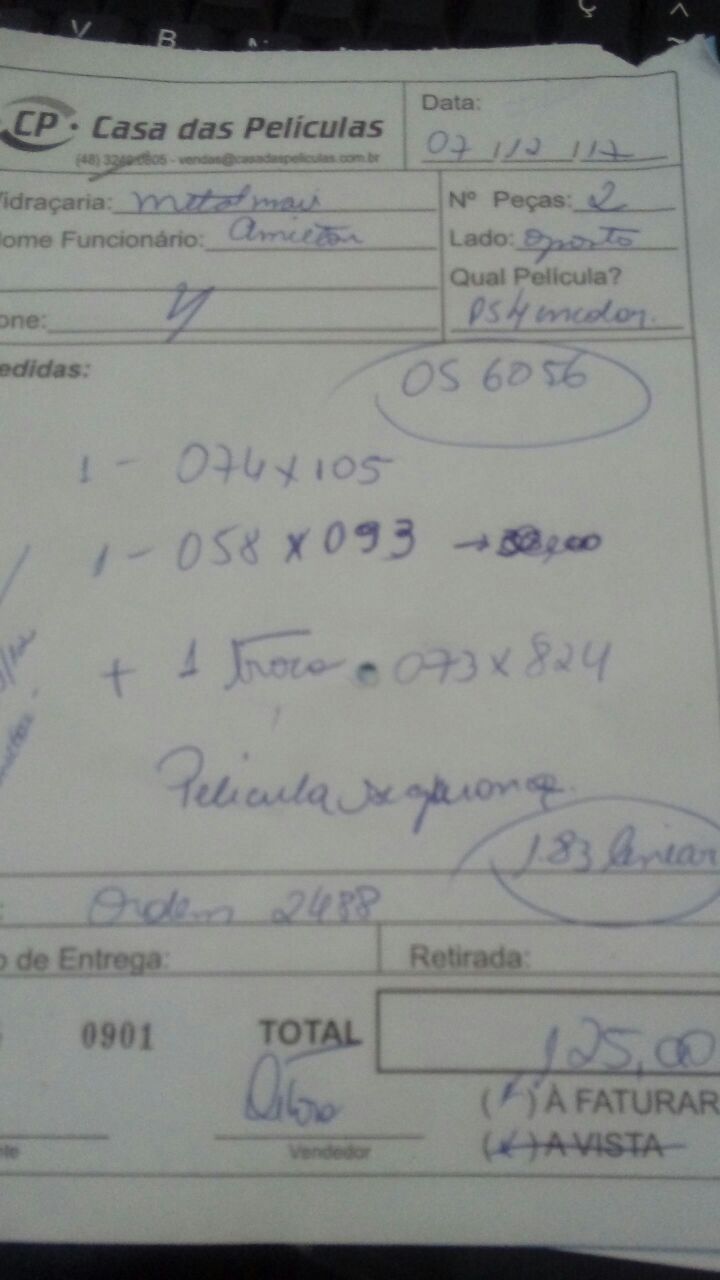 V B N Ç ^ ~
CP · Casa das Películas
(48) 3240-0805 - vendas@casadaspeliculas.com.br
Data:
07 / 12 / 17
Vidraçaria: metalmais
Nome Funcionário: Amilton
one:
Nº Peças: 2
Lado: oposto
Qual Película?
PS4 incolor.
edidas:
OS 6056
1 - 074 x 105
1 - 058 x 093 →
+ 1 Troca 073 x 824
Película segurança.
1.83 linear
: Ordem 2488
o de Entrega:
Retirada:
0901
TOTAL
125,00
( ) À FATURAR
( ) A VISTA
nte
Vendedor